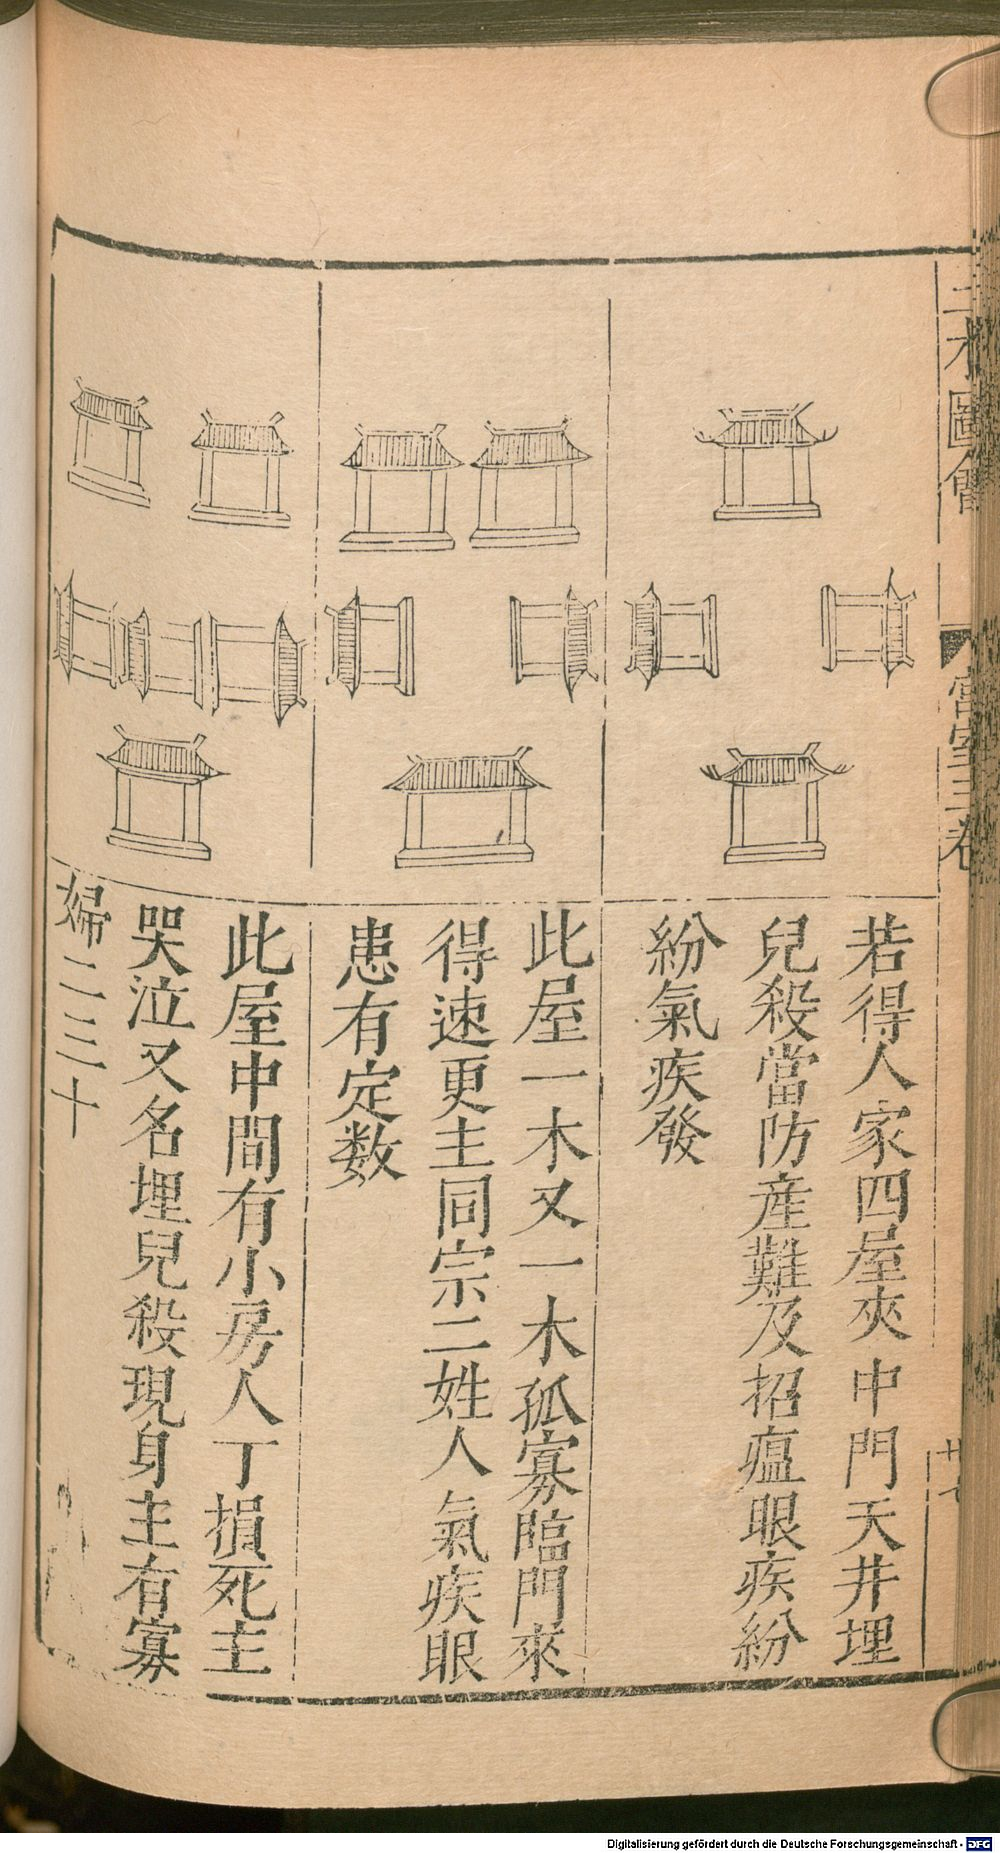 三才圖會
宮室三卷
廿七
若得人家四屋夾中門天井埋
兒殺當防産難及招瘟眼疾紛
紛氣疾發
此屋一木又一木孤寡臨門來
得速更主同宗二姓人氣疾眼
患有定数
此屋中間有小房人丁損死主
哭泣又名埋兒殺現身主有寡
婦二三十
Digitalisierung gefördert durch die Deutsche Forschungsgemeinschaft - DFG